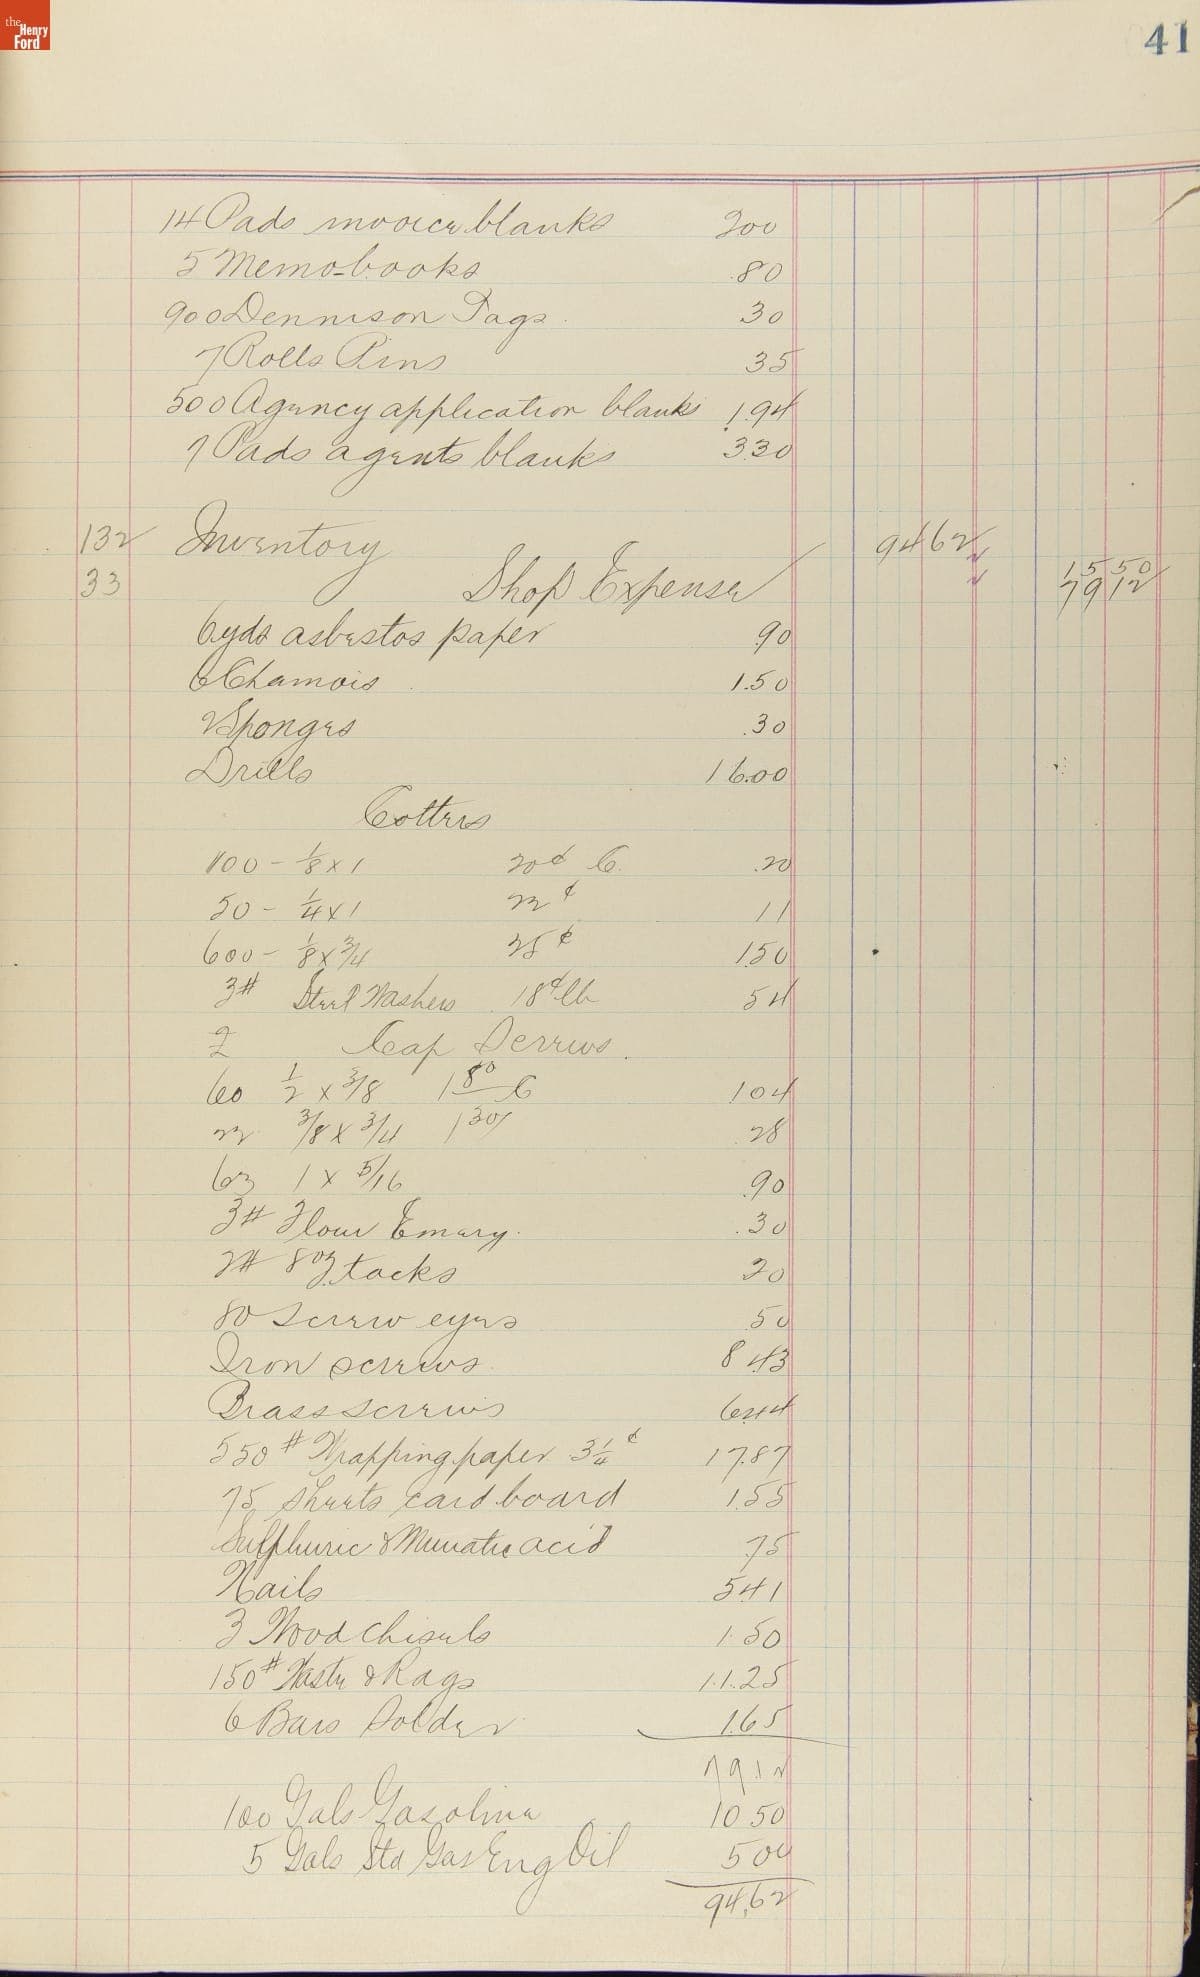 the Henry Ford
41
14 Pads invoice blanks 200
5 Memo-books .80
900 Dennison Tags 30
7 Rolls Pins 35
500 Agency application blanks 1.94
7 Pads agents blanks 3.30
132 Inventory 9462
33 Shop Expense 1550 7912
6 yds asbestos paper .90
6 Chamois 1.50
2 Sponges .30
Drills 16.00
Cotters
100 - 1/8 x 1 20¢ C. .20
50 - 1/4 x 1 22¢ 11
600 - 1/8 x 3/4 25¢ 1.50
3# Steel Washers 18¢ lb 54
Cap Screws
60 1/2 x 3/8 1 80 C 104
22 3/8 x 3/4 1 30 28
63 1 x 5/16 .90
3# Flour Emery .30
2# 8 oz tacks 20
80 Screw eyes 50
Iron screws 8 43
Brass screws 644
550# Wrapping paper 3 1/4¢ 17.87
75 sheets card board 1.55
Sulphuric & Muriatic acid 75
Nails 541
3 Wood chisels 1.50
150# Waste & Rags 11.25
6 Bars Solder 1.65
7912
100 Gals Gasoline 10 50
5 Gals Std Gas Eng Oil 5 00
94.62